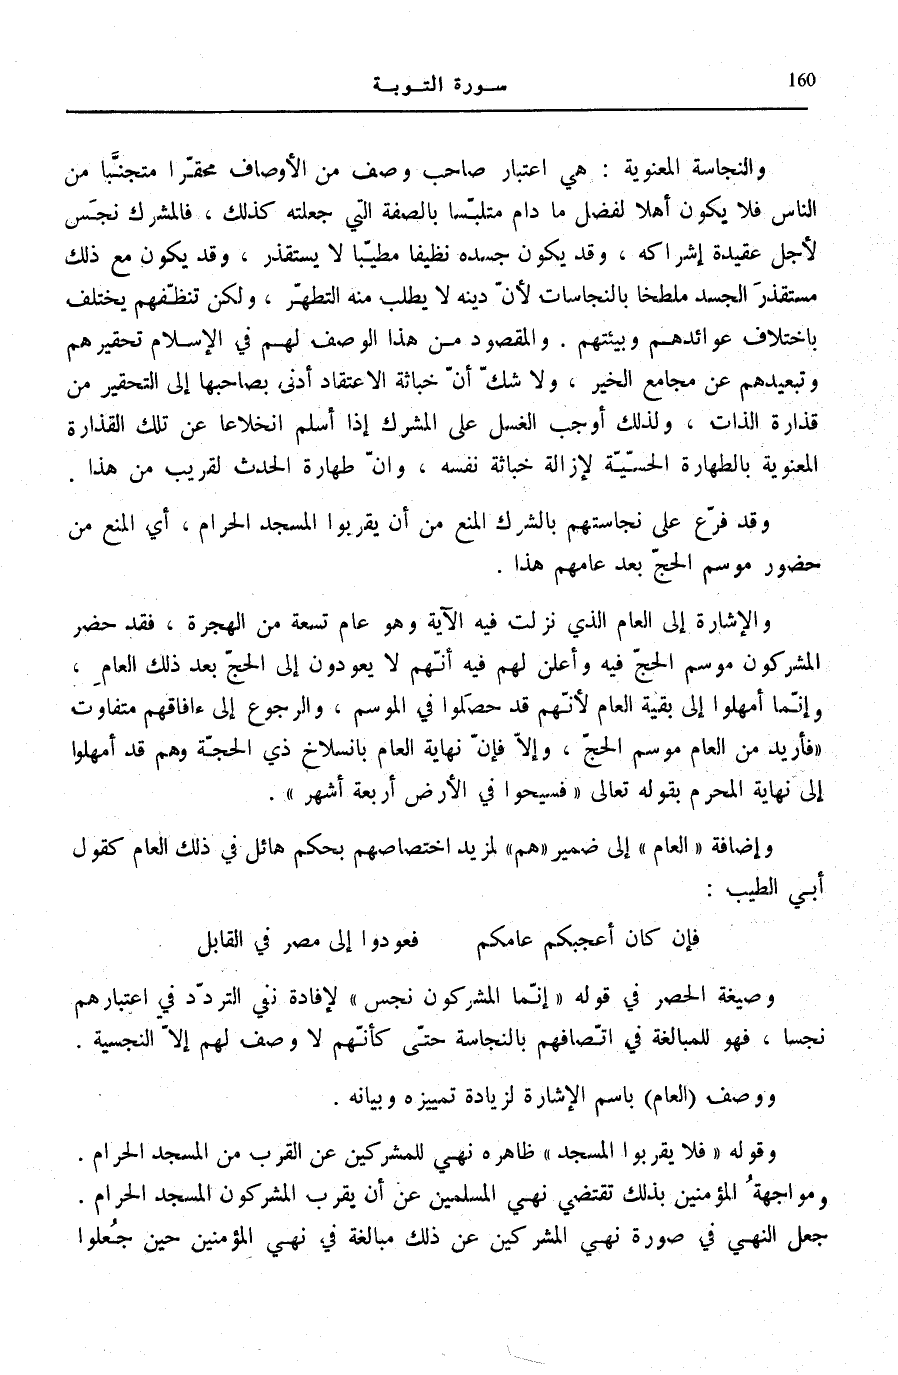 160
سورة التوبة
والنجاسة المعنوية : هي اعتبار صاحب وصف من الأوصاف محقّرا متجنَّبا من
الناس فلا يكون أهلا لفضل ما دام متلبّسا بالصفة التي جعلته كذلك ، فالمشرك نجَس
لأجل عقيدة إشراكه ، وقد يكون جسده نظيفا مطيّبا لا يستقذر ، وقد يكون مع ذلك
مستقذرَ الجسد ملطخا بالنجاسات لأنّ دينه لا يطلب منه التطهّر ، ولكن تنظّفهم يختلف
باختلاف عوائدهم وبيئتهم . والمقصود من هذا الوصف لهم في الإسلام تحقيرهم
وتبعيدهم عن مجامع الخير ، ولا شكّ أنّ خباثة الاعتقاد أدنى بصاحبها إلى التحقير من
قذارة الذات ، ولذلك أوجب الغسل على المشرك إذا أسلم انخلاعا عن تلك القذارة
المعنوية بالطهارة الحسّيّة لإزالة خباثة نفسه ، وانّ طهارة الحدث لقريب من هذا .
وقد فرّع على نجاستهم بالشرك المنع من أن يقربوا المسجد الحرام ، أي المنع من
حضور موسم الحجّ بعد عامهم هذا .
والإشارة إلى العام الذي نزلت فيه الآية وهو عام تسعة من الهجرة ، فقد حضر
المشركون موسم الحجّ فيه وأعلن لهم فيه أنّهم لا يعودون إلى الحجّ بعد ذلك العام ،
وإنّما أمهلوا إلى بقية العام لأنّهم قد حصَلوا في الموسم ، والرجوع إلى ءافاقهم متفاوت
«فأريد من العام موسم الحجّ ، وإلاّ فإنّ نهاية العام بانسلاخ ذي الحجّة وهم قد أمهلوا
إلى نهاية المحرم بقوله تعالى « فسيحوا في الأرض أربعة أشهر » .
وإضافة « العام » إلى ضمير «هم» لمزيد اختصاصهم بحكم هائل في ذلك العام كقول
أبي الطيب :
فإن كان أعجبكم عامكم فعودوا إلى مصر في القابل
وصيغة الحصر في قوله « إنّما المشركون نجس » لإفادة نفي التردّد في اعتبارهم
نجسا ، فهو للمبالغة في اتّصافهم بالنجاسة حتّى كأنّهم لا وصف لهم إلاّ النجسية .
ووصف (العام) باسم الإشارة لزيادة تمييزه وبيانه .
وقوله « فلا يقربوا المسجد » ظاهره نهي للمشركين عن القرب من المسجد الحرام .
ومواجهةُ المؤمنين بذلك تقتضي نهي المسلمين عن أن يقرب المشركون المسجد الحرام .
جعل النهي في صورة نهي المشركين عن ذلك مبالغة في نهي المؤمنين حين جُعلوا